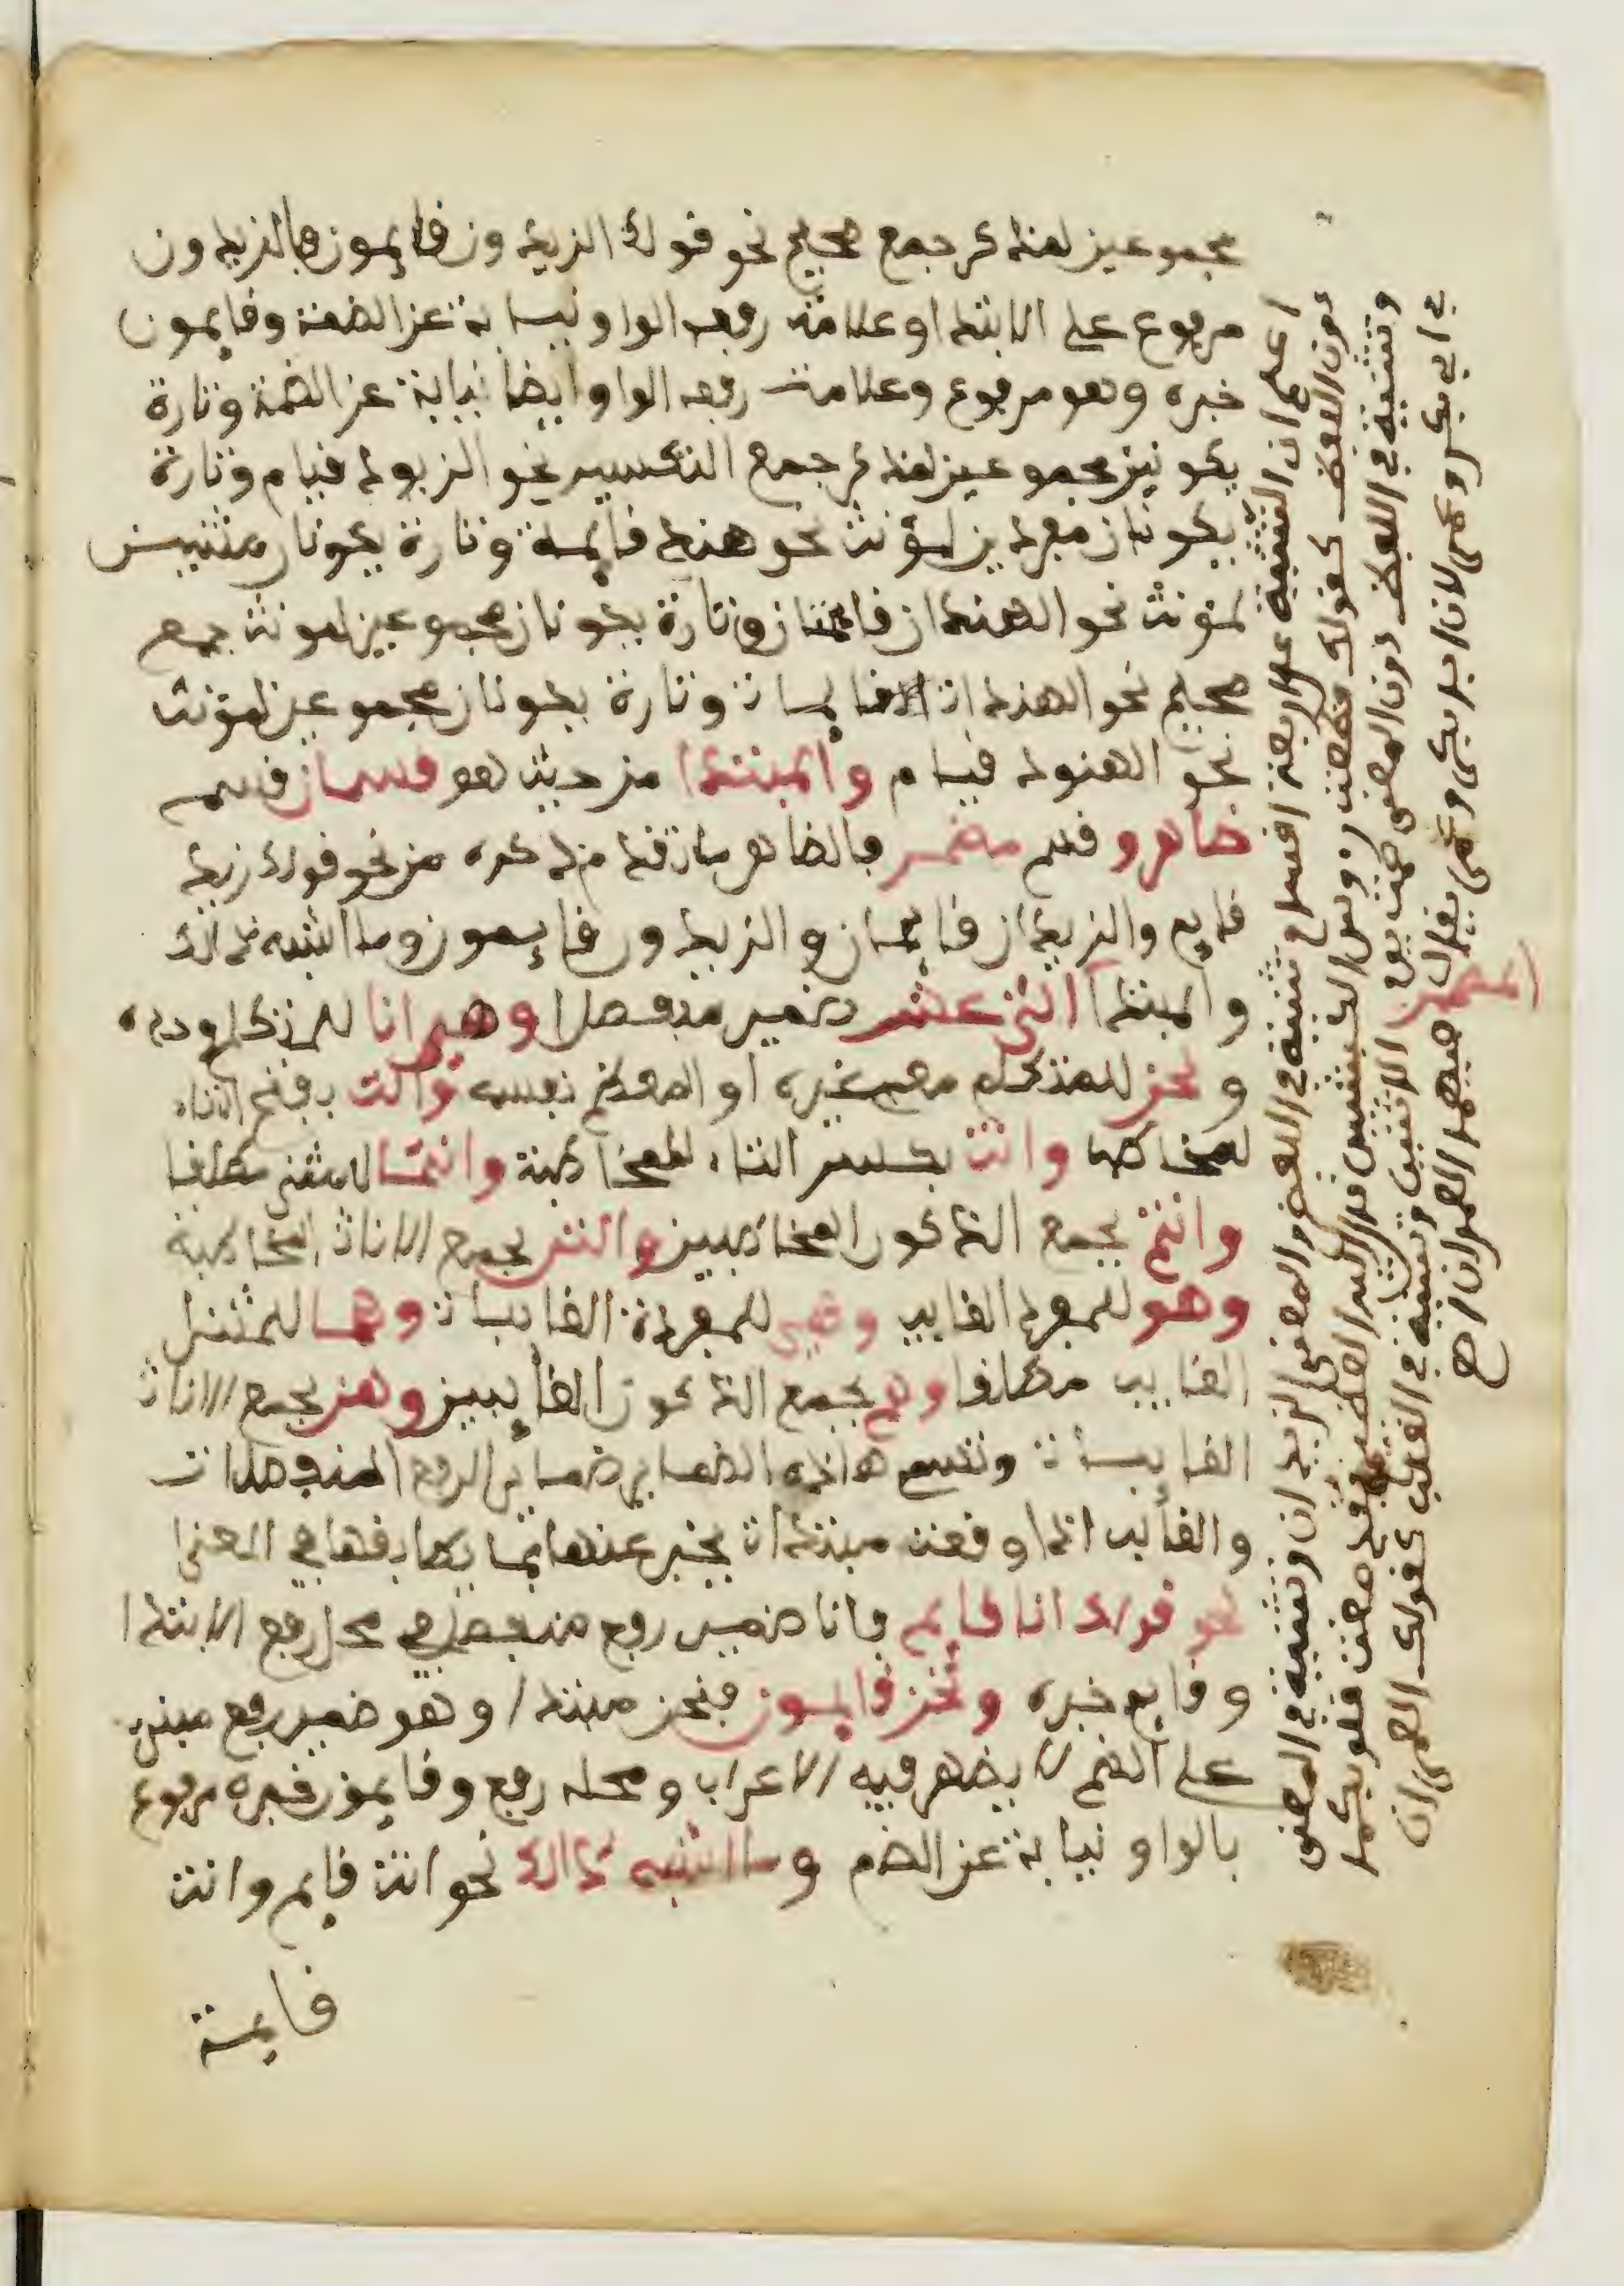 مجموعين لمذكر جمع صحيح نحو قولك الزيدون قايمون فالزيدون
مرفوع على الابتداء وعلامة رفعه الواو نيابة عن الضمة وقايمون
خبره وهو مرفوع وعلامة رفعه الواو ايضا نيابة عن الضمة وتارة
يكونين مجموعين لمذكر جمع التكسير نحو الزيود قيام وتارة
يكونان مفردين لمؤنث نحو هند قايمة وتارة يكونان مثنيين
لمؤنث نحو الهندان قايمتان وتارة يكونان مجموعين لمؤنث جمع
صحيح نحو الهندات قايمات وتارة يكونان مجموعين لمؤنث
نحو الهنود قيام والمبتدا من حيث هو قسمان قسم
ظاهر وقسم مضمر فالظاهر ما تقدم ذكره من نحو قولك زيد
قايم والزيدان قايمان والزيدون قايمون وما اشبه ذالك
والمبتدا اثنى عشر ضمير منفصلا وهي انا للمتكلم وحده
ونحن للمتكلم معه غيره او المعظم نفسه وانت بفتح التاء
للمخاطب وانت بكسر التاء للمخاطبة وانتما للمثنى مطلقا
وانتم لجمع الذكور المخاطبين وانتن لجمع الاناث المخاطبة
وهو للمفرد الغايب وهي للمفردة الغايبة وهما للمثنى
الغايب مطلقا وهم لجمع الذكور الغايبين وهن لجمع الاناث
الغايبات وتسم هاذه الضماير ضماير الرفع المنفصلات
والغالب اذا وقعت مبتدءات يخبر عنها بما يطابقها في المعنى
نحو قولك انا قايم فانا ضمير رفع منفصل في محل رفع الابتدا
وقايم خبره ونحن قايمون فنحن مبتدا وهو ضمير رفع مبني
على الضم لا يظهر فيه الاعراب ومحله رفع وقايمون خبره مرفوع
بالواو نيابة عن الضم وما اشبه ذالك نحو انت قايم وانت
قايمة
اعلم ان التثنية على اربعة اقسام تثنية في اللفظ والمعنى الزيدان وتثنية في المعنى
دون اللفظ كقولك قطعت رءوس الكبشين
وتثنية في اللفظ دون المعنى
المضمر